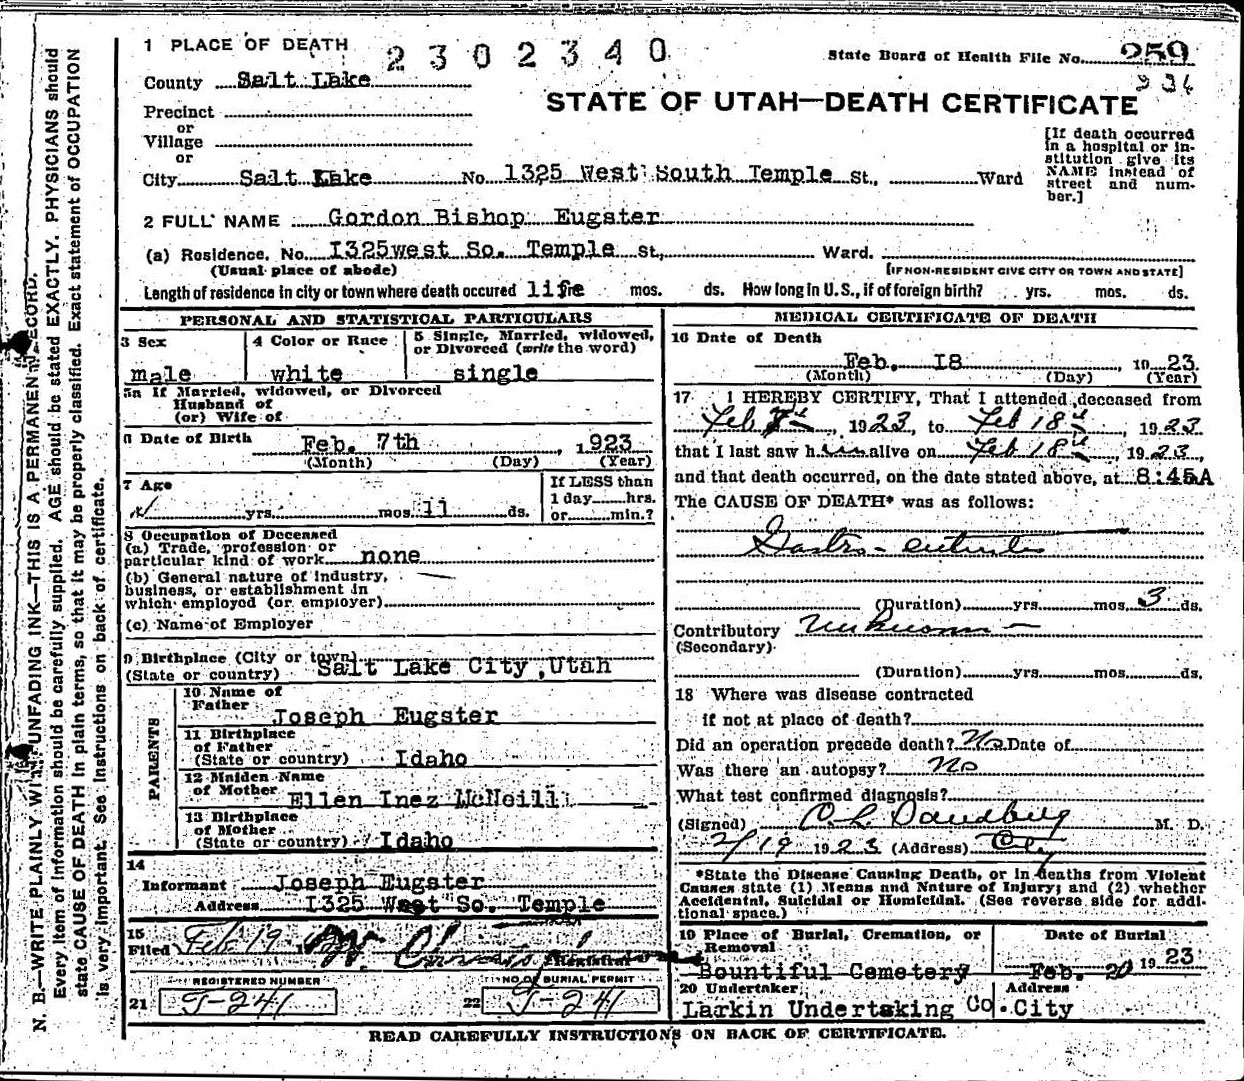 N. B.—WRITE PLAINLY WITH UNFADING INK—THIS IS A PERMANENT RECORD.
Every item of information should be carefully supplied. AGE should be stated EXACTLY. PHYSICIANS should
state CAUSE OF DEATH in plain terms, so that it may be properly classified. Exact statement of OCCUPATION
is very important. See instructions on back of certificate.
1 PLACE OF DEATH
2302340
State Board of Health File No. 259
936
County Salt Lake
STATE OF UTAH—DEATH CERTIFICATE
Precinct
or
Village
or
City Salt Lake No 1325 West South Temple St., Ward
[If death occurred
in a hospital or in-
stitution give its
NAME instead of
street and num-
ber.]
2 FULL NAME Gordon Bishop Eugster
(a) Residence. No. 1325west So. Temple St., Ward.
(Usual place of abode) [IF NON-RESIDENT GIVE CITY OR TOWN AND STATE]
Length of residence in city or town where death occured life mos. ds. How long in U. S., if of foreign birth? yrs. mos. ds.
PERSONAL AND STATISTICAL PARTICULARS
3 Sex
male
4 Color or Race
white
5 Single, Married, widowed,
or Divorced (write the word)
single
5a If Married, widowed, or Divorced
Husband of
(or) Wife of
6 Date of Birth Feb. 7th , 1923
(Month) (Day) (Year)
7 Age
yrs. mos. 11 ds.
If LESS than
1 day hrs.
or min.?
8 Occupation of Deceased
(a) Trade, profession or
particular kind of work none
(b) General nature of industry,
business, or establishment in
which employed (or employer)
(c) Name of Employer
9 Birthplace (City or town)
(State or country) Salt Lake City ,Utah
PARENTS
10 Name of
Father Joseph Eugster
11 Birthplace
of Father
(State or country) Idaho
12 Maiden Name
of Mother Ellen Inez McNeill
13 Birthplace
of Mother
(State or country) Idaho
14
Informant Joseph Eugster
Address 1325 West So. Temple
15
Filed Feb 19
Registrar
REGISTERED NUMBER
21 J-241
NO OF BURIAL PERMIT
22 J-241
MEDICAL CERTIFICATE OF DEATH
16 Date of Death
Feb. 18 , 19 23
(Month) (Day) (Year)
17 I HEREBY CERTIFY, That I attended deceased from
Feb , 1923, to Feb 18 , 1923
that I last saw him alive on Feb 18 , 1923,
and that death occurred, on the date stated above, at 8:45A
The CAUSE OF DEATH* was as follows:
Gastro-enteritis
(Duration) yrs. mos. 3 ds.
Contributory Unknown
(Secondary)
(Duration) yrs. mos. ds.
18 Where was disease contracted
if not at place of death?
Did an operation precede death? No Date of
Was there an autopsy? No
What test confirmed diagnosis?
(Signed) C. L. Sandberg M. D.
2/19 1923 (Address) City
*State the Disease Causing Death, or in deaths from Violent
Causes state (1) Means and Nature of Injury; and (2) whether
Accidental, Suicidal or Homicidal. (See reverse side for addi-
tional space.)
19 Place of Burial, Cremation, or
Removal
Bountiful Cemetery
Date of Burial
Feb. 20 19 23
20 Undertaker
Larkin Undertaking Co.
Address
City
READ CAREFULLY INSTRUCTIONS ON BACK OF CERTIFICATE.